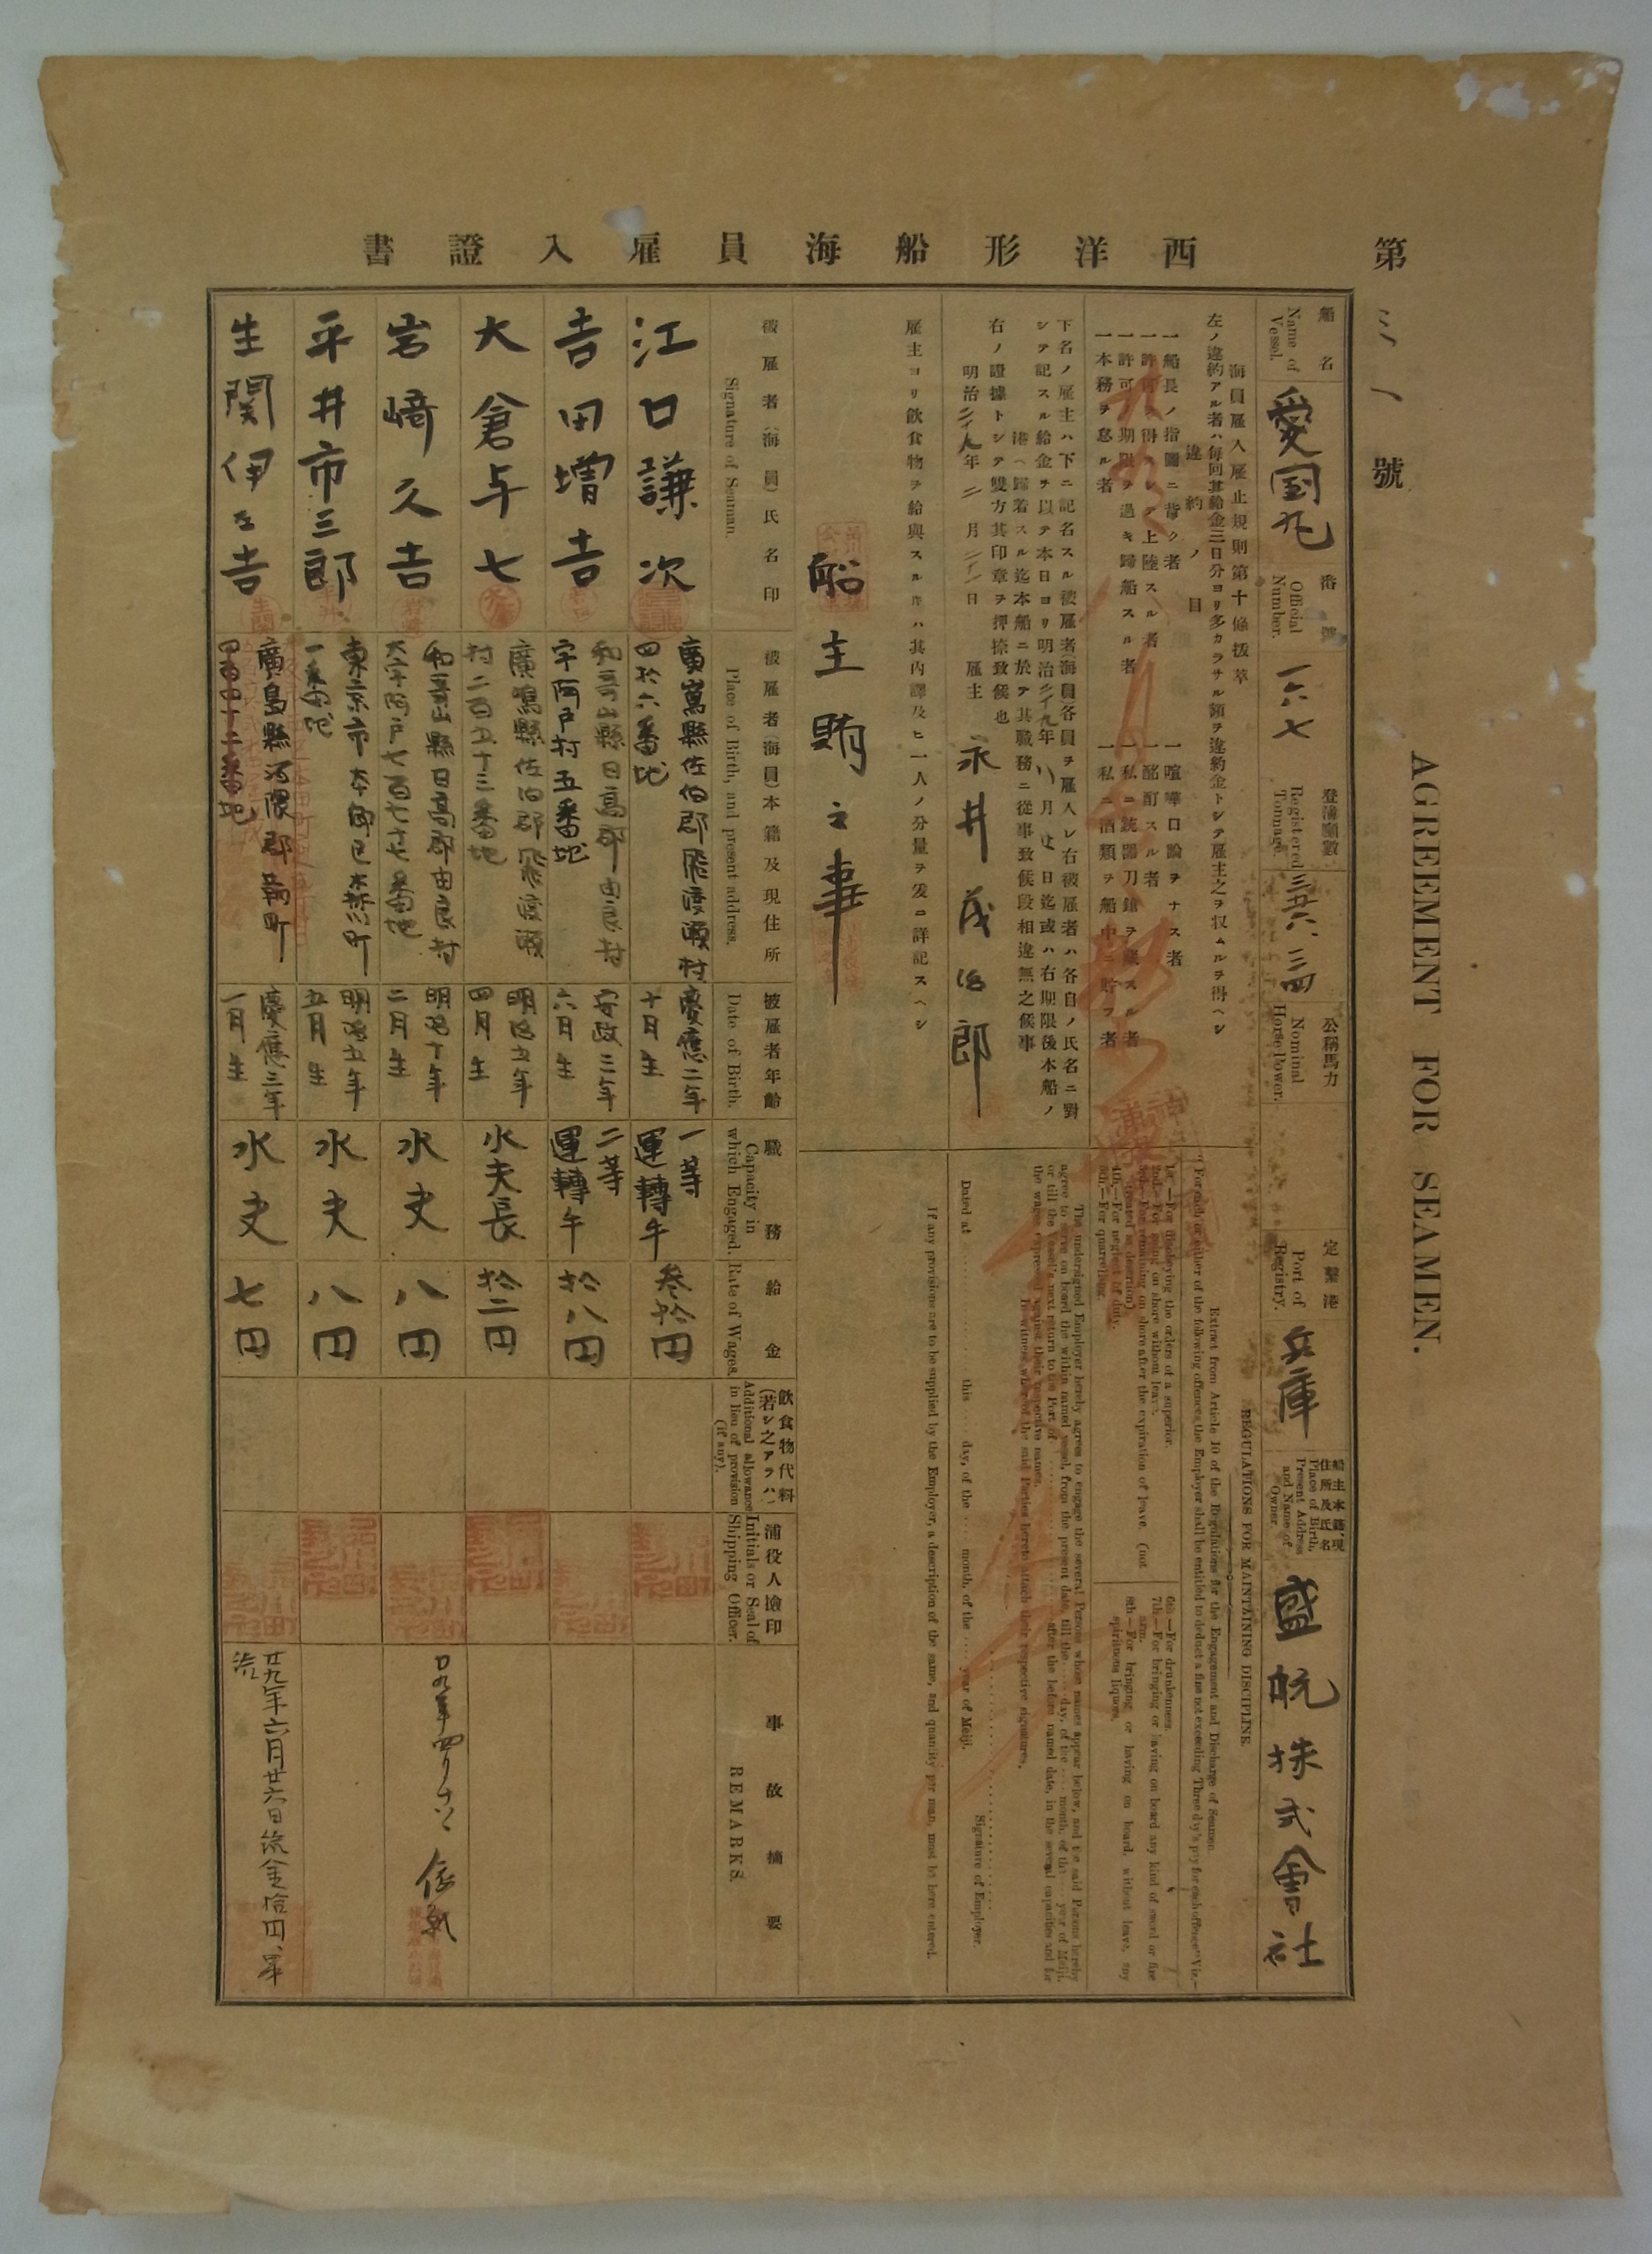 西洋形船海員雇入證書
第三一號
AGREEMENT FOR SEAMEN.
船名
Name of Vessel.
愛国丸
番號
Official Number.
一六七
登簿噸數
Registered Tonnage.
公稱馬力
Nominal Horse Power.
定繋港
Port of Registry.
兵庫
船主本籍、現住所及氏名
Place of Birth, Present Address and Name of Owner.
盛航株式會社
海員雇入雇止規則第十條拔萃
左ノ違約アル者ハ毎回其給金三日分ヨリ多カラサル額ヲ違約金トシテ雇主之ヲ収ムルヲ得ヘシ
違約ノ目
一船長ノ指圖ニ背ク者
一許可ヲ得スシテ上陸スル者
一許可ノ期限ヲ過キ歸船スル者
一本務ヲ怠ル者
一喧嘩口論ヲナス者
一酩酊スル者
一私ニ銃器刀鎗ヲ藏スル者
一私ニ酒類ヲ船中ニ貯フ者
REGULATIONS FOR MAINTAINING DISCIPLINE.
Extract from Article 10 of the Regulations for the Engagement and Discharge of Seamen.
"For each or either of the following offences the Employer shall be entitled to deduct a fine not exceeding Three day's pay for each offence" Viz.—
1st.—For disobeying the orders of a superior.
2nd.—For going on shore without leave.
3rd.—For remaining on shore after the expiration of leave. (not treated as desertion)
4th.—For neglect of duty.
5th.—For quarrelling.
6th.—For drunkenness.
7th.—For bringing or having on board any kind of sword or fire arm.
8th.—For bringing or having on board, without leave, any spirituous liquors.
下名ノ雇主ハ下ニ記名スル被雇者(海員)各員ヲ雇入レ右被雇者ハ各自ノ氏名ニ對
シテ記スル給金ヲ以テ本日ヨリ明治廿九年八月廿日迄或ハ右期限後本船ノ
港ヘ歸着スル迄本船ニ於テ其職務ニ從事致候段相違無之候事
右ノ證據トシテ雙方其印章ヲ押捺致候也
明治廿九年二月廿一日
雇主
永井茂治郎
The undersigned Employer hereby agrees to engage the several Persons whose names appear below, and the said Persons hereby
agree to serve on board the within named vessel, from the present date, till the day, of the month, of the year of Meiji,
or till the vessel's next return to the Port of after the before named date, in the several capacities and for
the wages expressed against their respective names.
In witness whereof the said Parties hereto attach their respective signatures.
Dated at this day, of the month, of the year of Meiji.
Signature of Employer.
雇主ヨリ飲食物ヲ給與スル片ハ其内譯及ヒ一人ノ分量ヲ爰ニ詳記スヘシ
If any provisions are to be supplied by the Employer, a description of the same, and quantity per man, must be here entered.
船主賄之事
被雇者(海員)氏名印
Signature of Seaman.
被雇者(海員)本籍及現住所
Place of Birth, and present address.
被雇者年齡
Date of Birth.
職務
Capacity in which Engaged.
給金
Rate of Wages.
飲食物代料(若シ之アラハ)
Additional allowance in lieu of provision (if any).
浦役人撿印
Initials or Seal of Shipping Officer.
事故摘要
REMARKS.
江口謙次
廣嶌縣佐伯郡飛渡瀬村
四拾六番地
慶應二年
十月生
一等
運轉手
参拾円
吉田増吉
和哥山縣日高郡由良村
字阿戸村五番地
安政三年
六月生
二等
運轉手
拾八円
大倉与七
廣嶋縣佐伯郡飛渡瀬
村二百五十三番地
明治五年
四月生
水夫長
拾二円
岩﨑久吉
和哥山縣日高郡由良村
大字阿戸七百七十七番地
明治十年
二月生
水夫
八円
平井市三郎
明治五年
五月生
水夫
八円
生関伊与吉
廣島縣沼隈郡鞆町
慶應三年
一月生
水夫
七円
廿九年六月廿六日